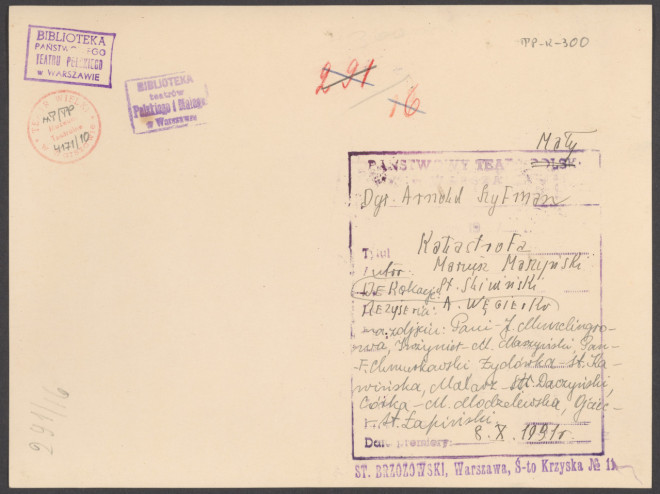 BIBLIOTEKA
PAŃSTWOWEGO
TEATRU POLSKIEGO
w WARSZAWIE
BIBLIOTEKA
teatrów
Polskiego i Małego
w Warszawie
TEATR WIELKI
MT/TP
Muzeum
Teatralne
4171/10
291
16
TP-K-300
Mały
PAŃSTWOWY TEATR POLSKI
Dyr. Arnold Szyfman
Tytuł Katastrofa
Autor: Mariusz Maszyński
DEKoracje St. Śliwiński
REŻYSERIA: A. WĘGIERKO
na zdjęciu: Pani - J. Munclingro-
wa, Inżynier - M. Maszyński Pan-
F. Chmurkowski Żydówka - St. Ka-
wińska, Malarz - St. Daczyński,
Córka - M. Modzelewska, Ojciec
- St. Łapiński
Data premiery: 8.X.1931r.
ST. BRZOZOWSKI, Warszawa, S-to Krzyska № 11
291/16